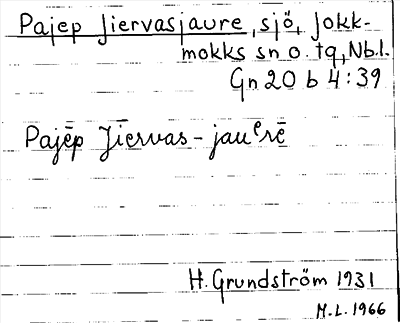 Pajep Jiervasjaure, sjö, Jokk-
mokks sn o. tg, Nb.l.
Gn 20 b 4:39
Pajēp Jīervas-jauᵉrē
H. Grundström 1931
M.L. 1966